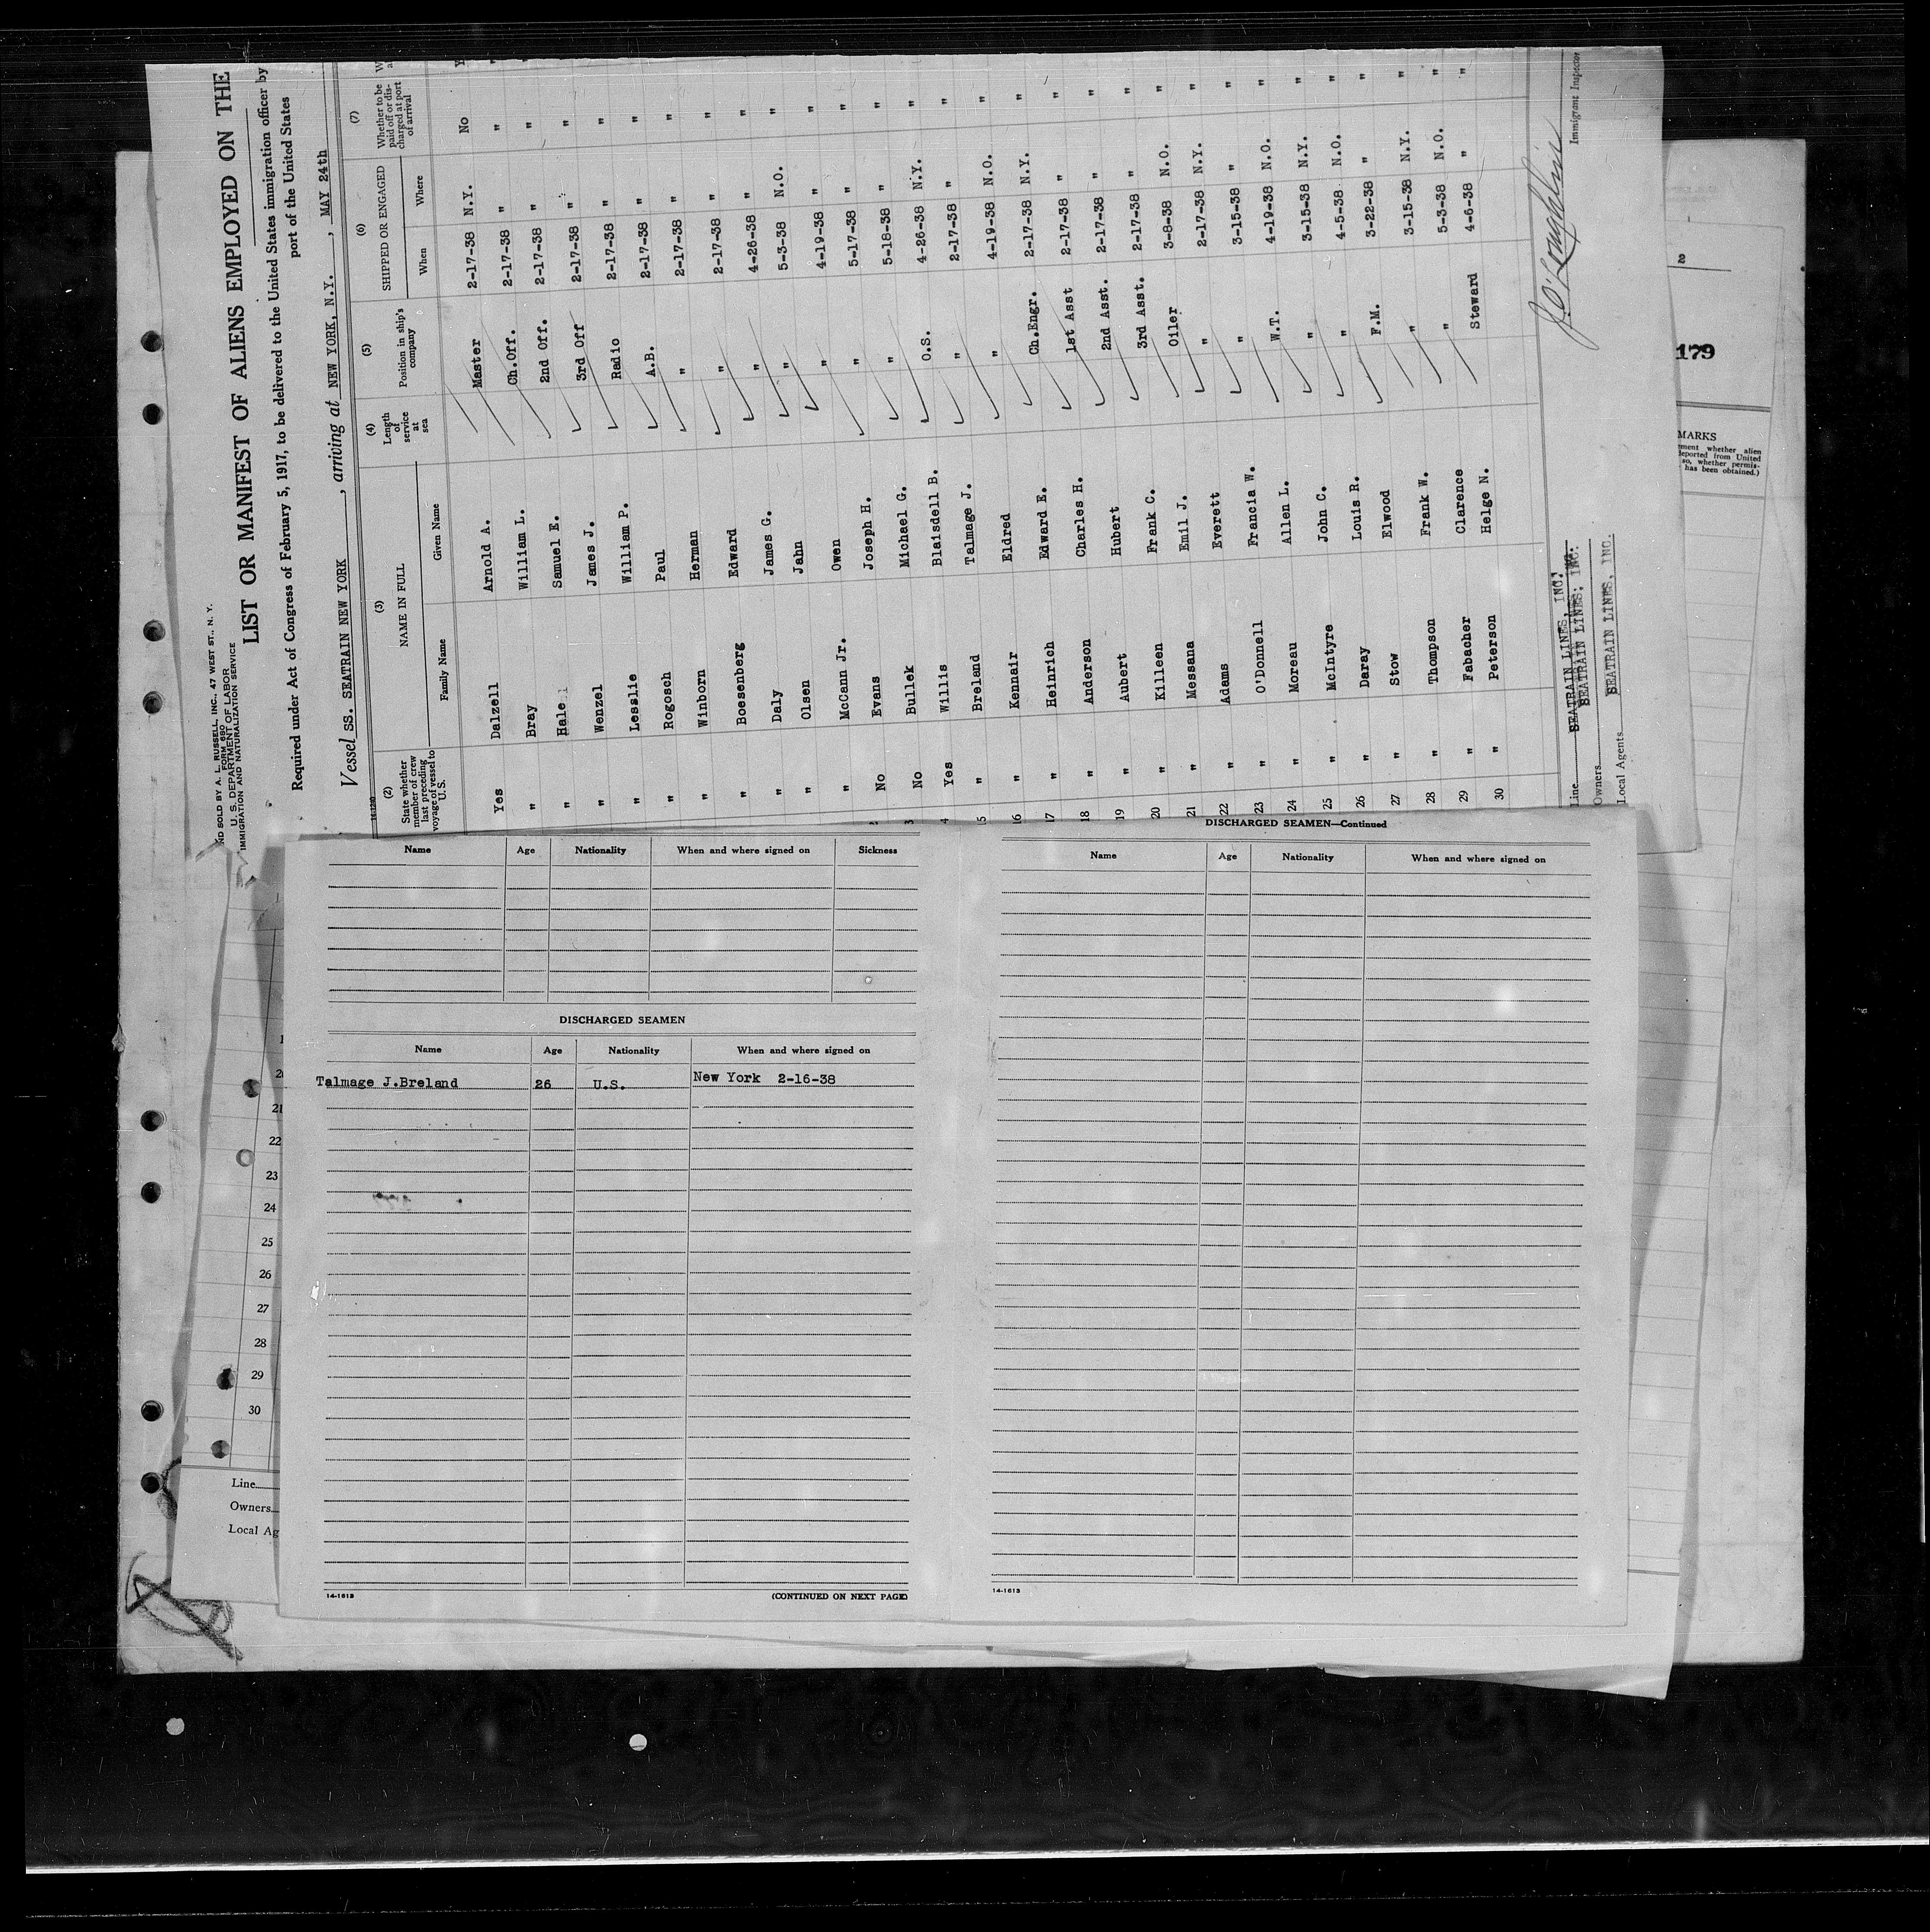 ND SOLD BY A. L. RUSSELL, INC., 47 WEST ST., N. Y.
FORM 680
U. S. DEPARTMENT OF LABOR
IMMIGRATION AND NATURALIZATION SERVICE
LIST OR MANIFEST OF ALIENS EMPLOYED ON THE
Required under Act of Congress of February 5, 1917, to be delivered to the United States immigration officer by
port of the United States
Vessel SS. SEATRAIN NEW YORK, arriving at NEW YORK, N.Y., MAY 24th
(2) (3) (4) (5) (6) (7)
State whether member of crew last preceding voyage of vessel to U.S. NAME IN FULL Length of service at sea Position in ship's company SHIPPED OR ENGAGED Whether to be paid off or discharged at port of arrival
Family Name Given Name When Where
Yes Dalzell Arnold A. Master 2-17-38 N.Y. No
" Bray William L. Ch.Off. 2-17-38 " "
" Hale Samuel E. 2nd Off. 2-17-38 " "
" Wenzel James J. 3rd Off 2-17-38 " "
" Lesslie William P. Radio 2-17-38 " "
" Rogosch Paul A.B. 2-17-38 " "
" Winborn Herman " 2-17-38 " "
" Boesenberg Edward " 2-17-38 " "
" Daly James G. " 4-26-38 " "
" Olsen Jahn " 5-3-38 N.O. "
" McCann Jr. Owen " 4-19-38 " "
No Evans Joseph H. " 5-17-38 " "
No Bullek Michael G. " 5-18-38 " "
4 Yes Willis Blaisdell B. O.S. 4-26-38 N.Y. "
15 " Breland Talmage J. " 2-17-38 " "
16 " Kennair Eldred " 4-19-38 N.O. "
17 " Heinrich Edward E. Ch.Engr. 2-17-38 N.Y. "
18 " Anderson Charles H. 1st Asst 2-17-38 " "
19 " Aubert Hubert 2nd Asst. 2-17-38 " "
20 " Killeen Frank C. 3rd Asst. 2-17-38 " "
21 " Messana Emil J. Oiler 3-8-38 N.O. "
22 " Adams Everett " 2-17-38 N.Y. "
23 " O'Donnell Francia W. " 3-15-38 " "
24 " Moreau Allen L. W.T. 4-19-38 N.O. "
25 " McIntyre John C. " 3-15-38 N.Y. "
26 " Daray Louis R. " 4-5-38 N.O. "
27 " Stow Elwood F.M. 3-22-38 " "
28 " Thompson Frank W. " 3-15-38 N.Y. "
29 " Fabacher Clarence " 5-3-38 N.O. "
30 " Peterson Helge N. Steward 4-6-38 " "
Line SEATRAIN LINES, INC.
Owners SEATRAIN LINES, INC.
Local Agents SEATRAIN LINES, INC.
J. O'Loughlin
Immigrant Inspector
2
179
MARKS
ment whether alien
deported from United
so, whether permis-
has been obtained.)
Name Age Nationality When and where signed on Sickness
DISCHARGED SEAMEN
Name Age Nationality When and where signed on
Talmage J.Breland 26 U.S. New York 2-16-38
14-1613
(CONTINUED ON NEXT PAGE)
DISCHARGED SEAMEN—Continued
Name Age Nationality When and where signed on
14-1613
21
22
23
24
25
26
27
28
29
30
Line
Owners
Local Ag